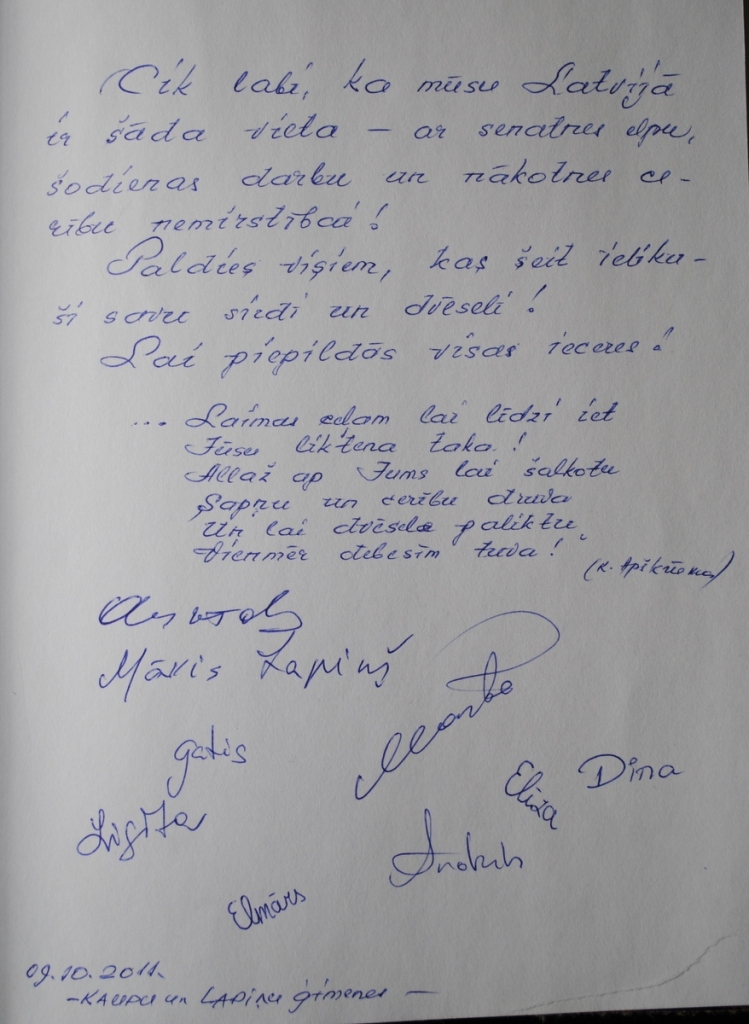 Cik labi, ka mūsu Latvijā
ir šāda vieta — ar senatnes elpu,
šodienas darbu un nākotnes ce-
rību nemirstībā!
Paldies visiem, kas šeit ieliku-
ši savu sirdi un dvēseli!
Lai piepildās visas ieceres!
... Laimas ceļam lai līdzi iet
Jūsu likteņa taka!
Allaž ap Jums lai šalkotu
Sapņu un cerību druva
Un lai dvēsele paliktu
Vienmēr debesīm tuva!"
Māris Lapiņš
Gatis
Dina
Elīza
Ligita
Elmārs
09.10.2011.
- KAUPU un LAPIŅU ģimenes —